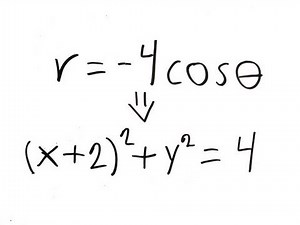 r = -4 cosθ
⇓
(x+2)² + y² = 4